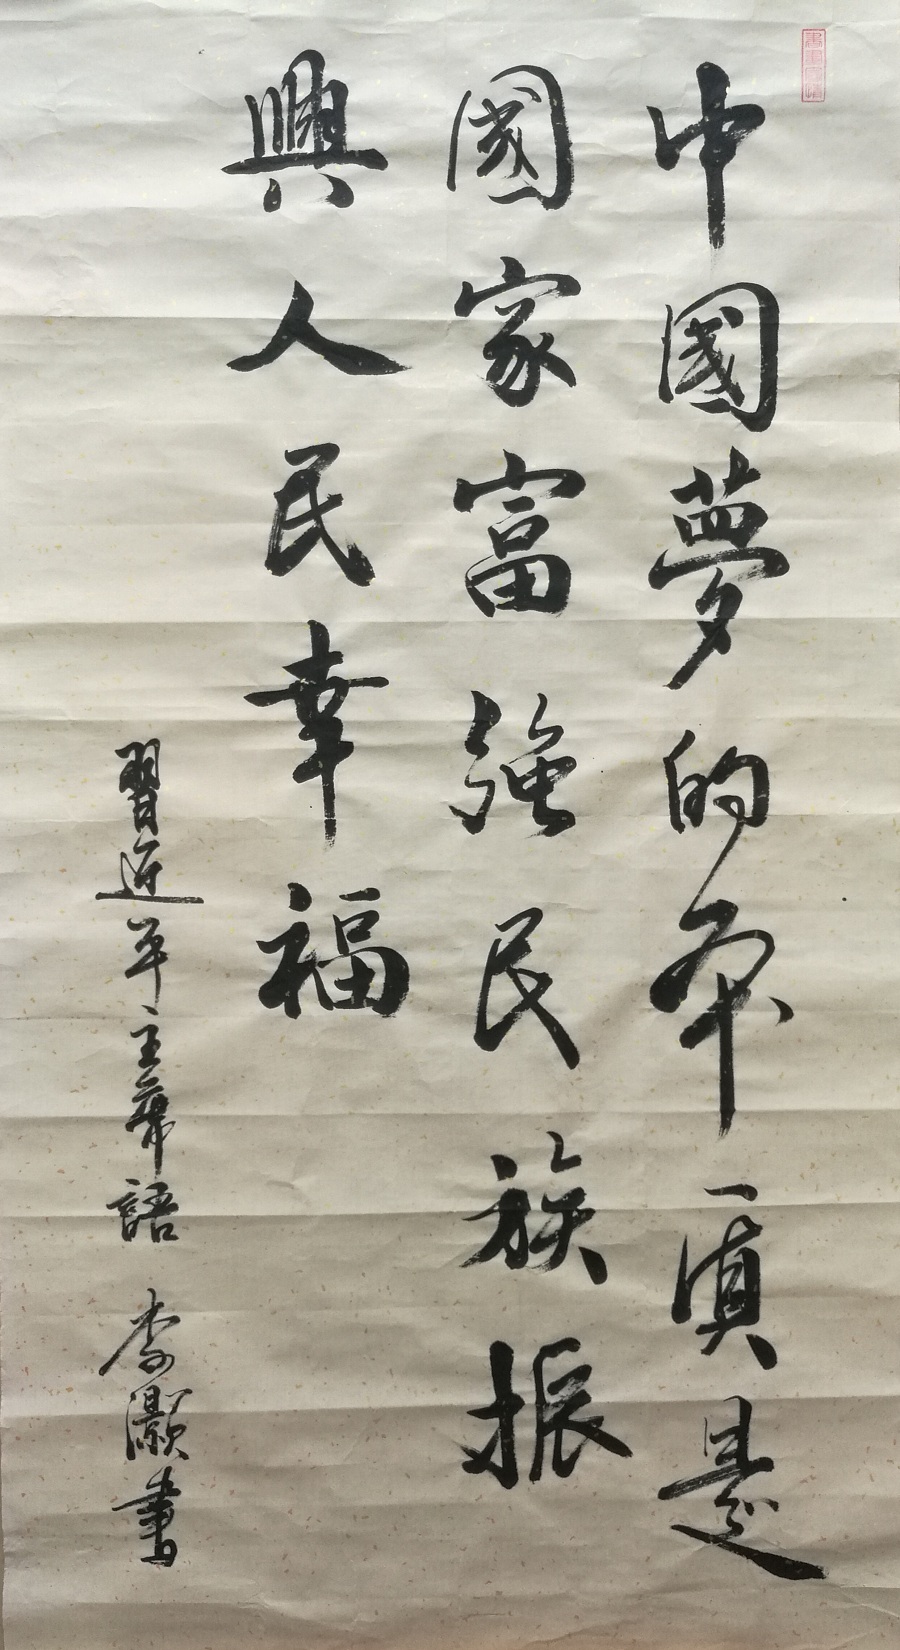 中國夢的本質是
國家富強民族振
興人民幸福
習近平主席語 李灝書